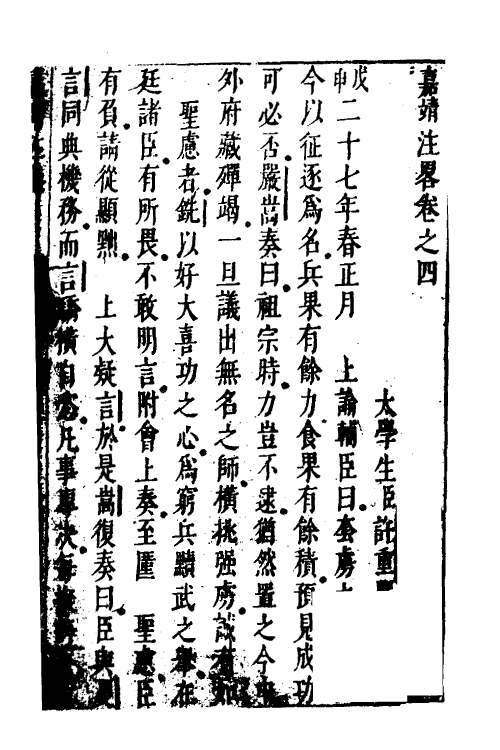 嘉靖注畧卷之四
太學生臣許重
戊申二十七年春正月 上諭輔臣曰套虜
今以征逐爲名兵果有餘力食果有餘積預見成功
可必否嚴嵩奏曰祖宗時力豈不逮猶然置之今
外府藏殫竭一旦議出無名之師橫挑强虜誠有
聖慮者銑以好大喜功之心爲窮兵黷武之舉在
廷諸臣有所畏不敢明言附會上奏至匯 聖慮臣
有負請從顯黜 上大疑言於是嵩復奏曰臣與
言同典機務而言驕橫自恣凡事專決